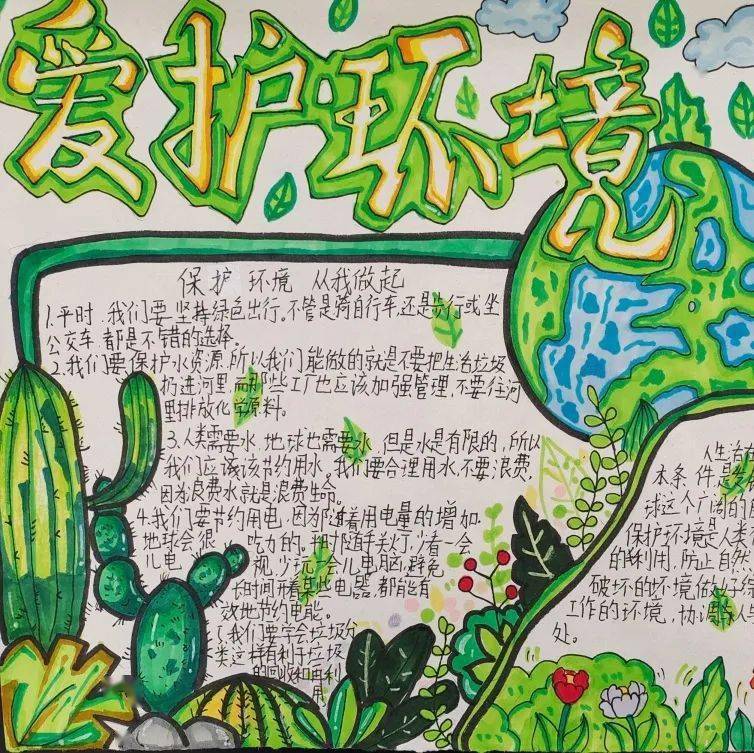 爱护环境
保护环境 从我做起
1.平时,我们要坚持绿色出行。不管是骑自行车还是步行或坐
公交车,都是不错的选择。
2.我们要保护水资源,所以我们能做的就是不要把生活垃圾
扔进河里,而那些工厂也应该加强管理,不要往河
里排放化学原料。
3.人类需要水,地球也需要水,但是水是有限的,所以
我们应该该节约用水,我们要合理用水,不要浪费,
因为浪费水就是浪费生命。
4.我们要节约用电,因为随着用电量的增加
地球会很 吃力的。 随手关灯,少看一会
儿电 视,少玩一会儿电脑,避免
时间开着某些电器,都能有
效地节约电能。
我们要学会垃圾分
类,这样有利于垃圾
的回收和再利
用
人生活的
本条件是
球这个广阔的
保护环境是人类有
的利用,防止自然
破坏的环境做好
工作的环境,协调 人与
处。